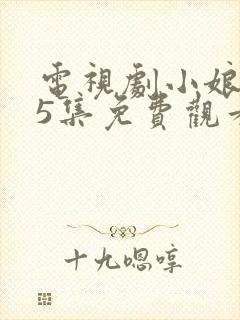 電視劇小娘
5集免費觀
十九嗯哼